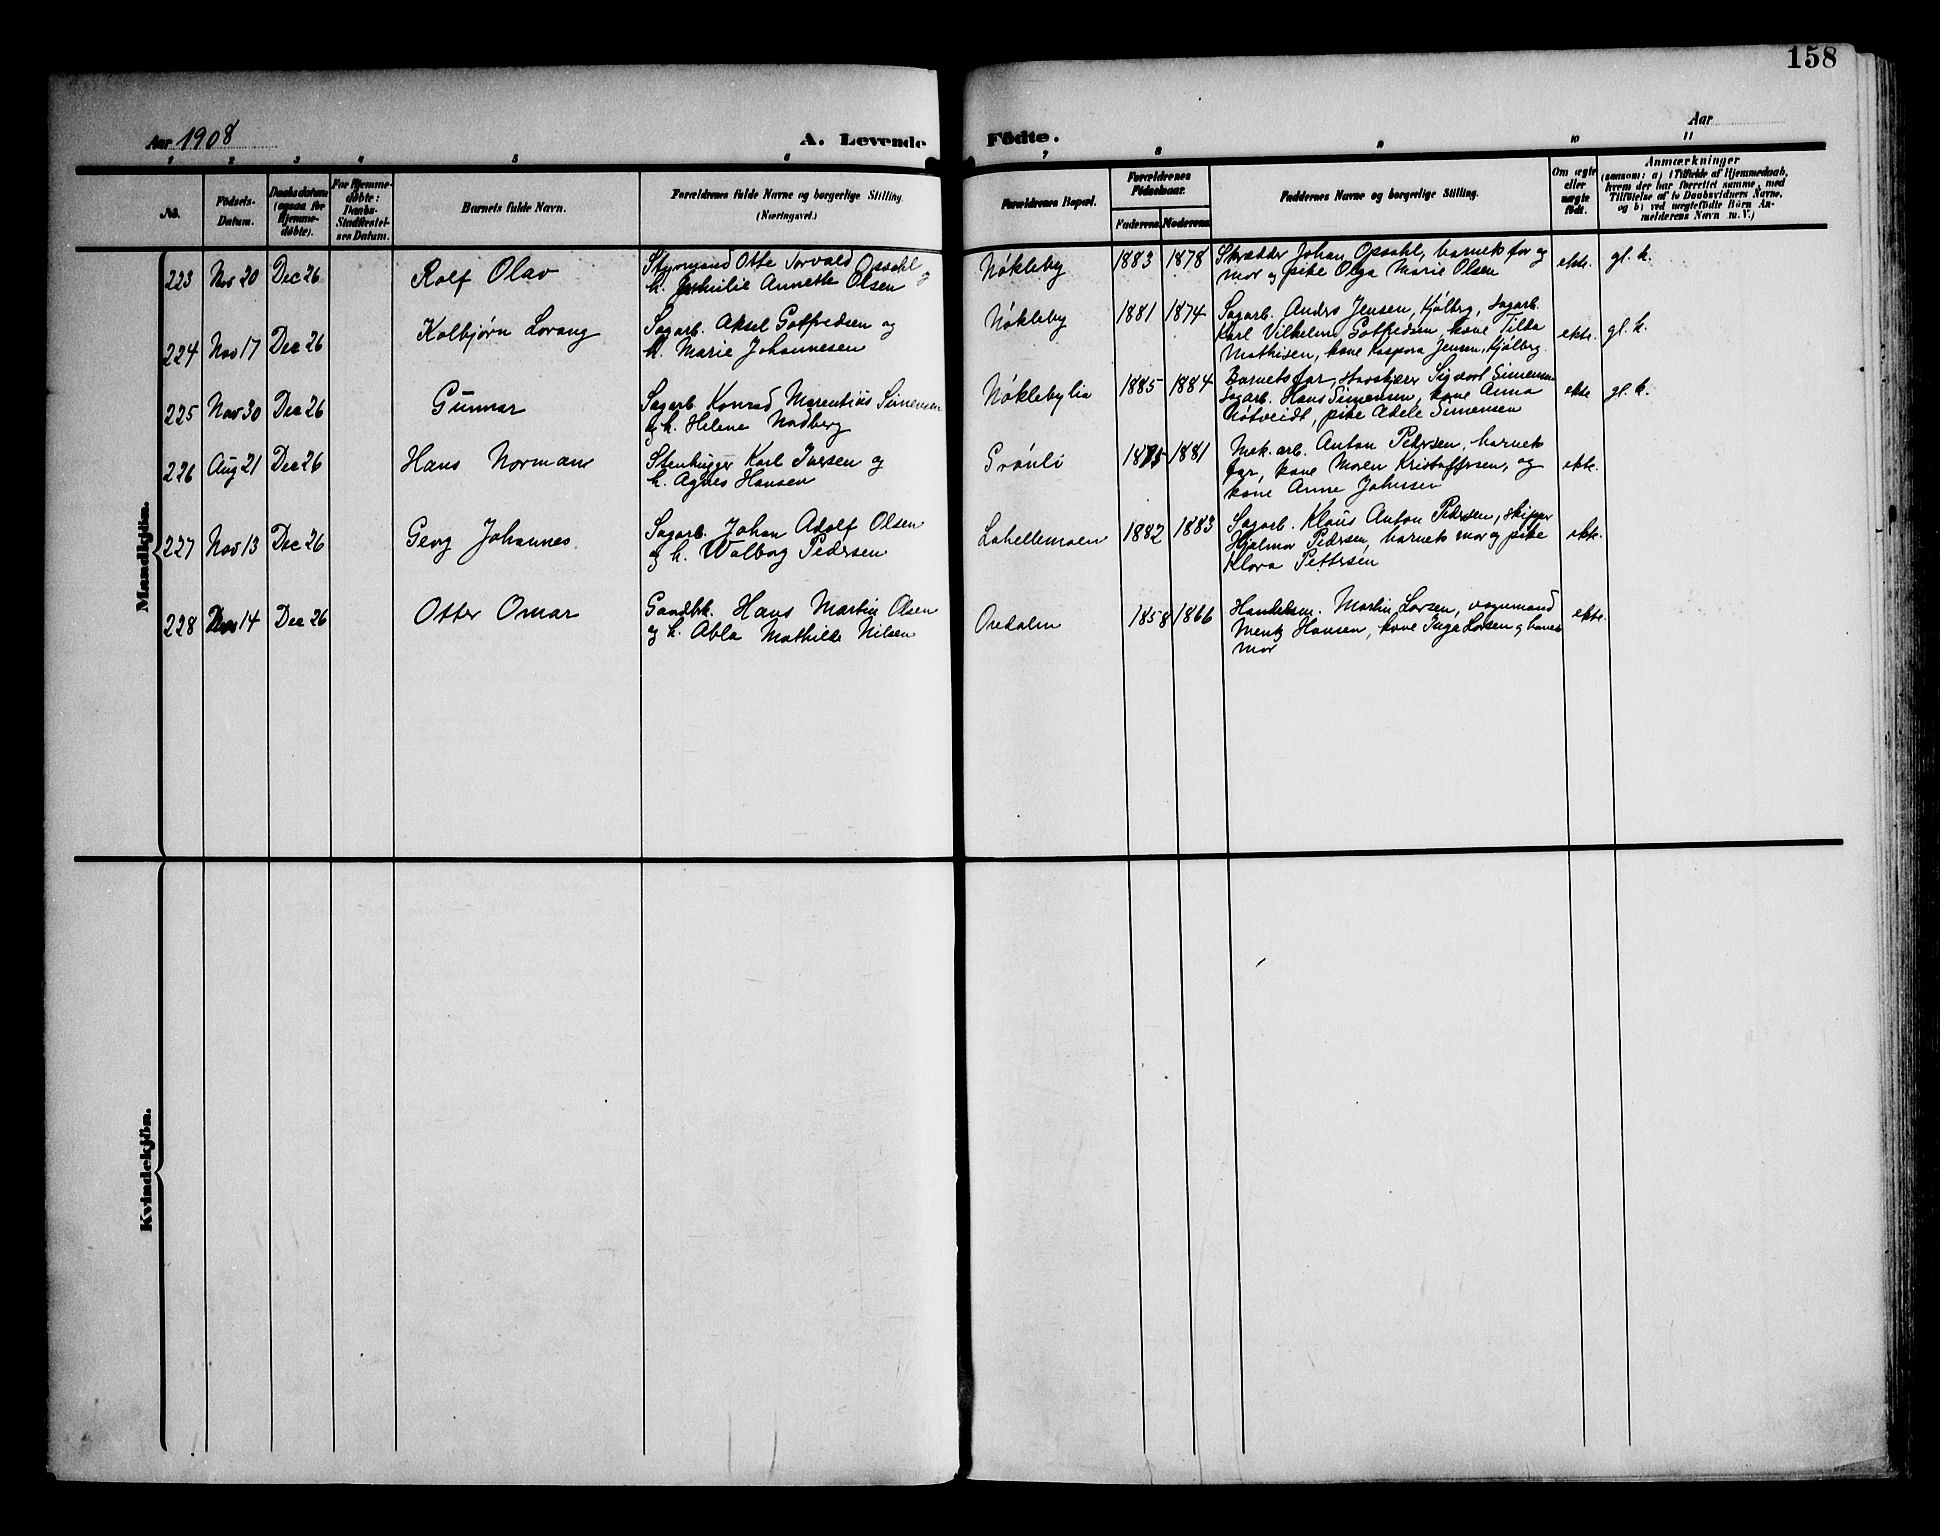 158
Aar 1908
A. Levende
Födte.
Aar
1 2 3 4 5 6 7 8 9 10 11
No.
Födsels-
Datum.
Daabsdatum
(ogsaa for
Hjemme-
döbte).
For Hjemme-
döbte:
Daabs-
Stadfæstel-
ses Datum.
Barnets fulde Navn.
Forældrenes fulde Navne og borgerlige Stilling
(Næringsvei.)
Forældrenes Bopæl.
Forældrenes
Födselsaar.
Faderens Moderens
Faddernes Navne og borgerlige Stilling.
Om ægte
eller
uægte
födt.
Anmærkninger
(saasom: a) i Tilfælde af Hjemmedaab,
hvem der har forrettet samme, med
Tilföielse af to Daabsvidners Navne,
og b) ved uægtefödte Börn An-
melderens Navn m. V.)
Mandkjön.
223 Nov 20 Dec 26 Rolf Olav
Styrmand Otte Torvald Opsahl og
h. Annette Olsen
Nøkleby 1883 1878
Skrædder Johan Opsahl, barnets far og
mor og pike Olga Marie Olsen
ekte. gl. k.
224 Nov 17 Dec 26 Kolbjørn Lorang
Sagarb. Aksel Gotfredsen og
h. Marie Johannesen
Nøkleby 1881 1874
Sagarb. Anders Jensen, Kjølberg, sagarb.
Karl Vilhelm Gotfredsen, kone Tilda
Mathisen, kone Kaspara Jensen, Kjølberg.
ekte. gl. k.
225 Nov 30 Dec 26 Gunnar
Sagarb. Konrad Marentius Simensen
og h. Helene Nordberg
Nøklebylia 1885 1884
Barnets far, Sigvart Simensen
sagarb. Hans Simensen, kone Anna
pike Adele Simensen
ekte gl. k.
226 Aug 21 Dec 26 Hans Norman
Stenhugger Karl Iversen og
h. Agnes Hansen
Grønli 1881
Mek. arb. Anton Petersen, barnets
far, kone Maren Kristoffersen, og
kone Anne Johnsen
ekte.
227 Nov 13 Dec 26 Georg Johannes
Sagarb. Johan Adolf Olsen
og h. Walborg Pedersen
Lahellemoen 1882 1883
Sagarb. Klaus Anton Pedersen, skipper
Hjalmar Pedersen, barnets mor og pike
Klara Pettersen
ekte.
228 14 Dec 26 Otter Omar
Gaardbr. Hans Martin Olsen
og h. Abla Mathilde Nilsen
Oredalen 1858 1866
Handelsm. Martin Larsen, vognmand
Mentz Hansen, kone Inga Larsen og barnets
mor
ekte.
Kvindekjön.